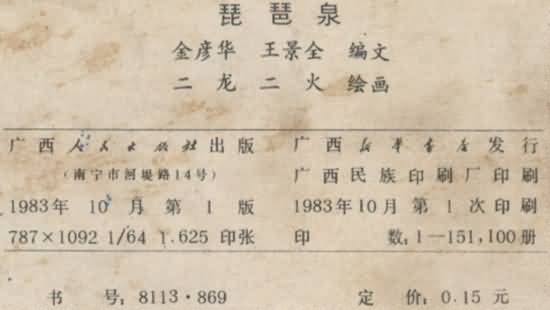 琵琶泉
金彦华 王景全 编文
二龙二火 绘画
广西人民出版社出版
(南宁市河堤路14号)
1983年10月第1版
787×1092 1/64 1.625印张
广西新华书店发行
广西民族印刷厂印刷
1983年10月第1次印刷
印数:1—151,100册
书号:8113·869
定价:0.15元